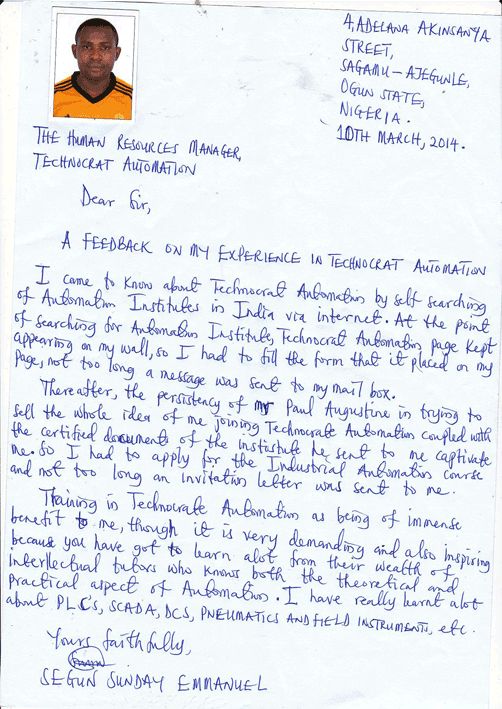 4, ADELANA AKINSANYA
STREET,
SAGAMU - AJEGUNLE,
OGUN STATE,
NIGERIA.
10TH MARCH, 2014.
THE HUMAN RESOURCES MANAGER,
TECHNOCRAT AUTOMATION
Dear Sir,
A FEEDBACK ON MY EXPERIENCE IN TECHNOCRAT AUTOMATION
I came to know about Technocrat Automation by self searching
of Automation Institutes in India via internet. At the point
of searching for Automation Institute, Technocrat Automation page kept
appearing on my wall, so I had to fill the form that it placed on my
page, not too long a message was sent to my mail box.
Thereafter, the persistency of Mr Paul Augustine in trying to
sell the whole idea of me joining Technocrate Automation coupled with
the certified documents of the institute he sent to me captivate
me. So I had to apply for the Industrial Automation course
and not too long an invitation letter was sent to me.
Training in Technocrate Automation as being of immense
benefit to me, though it is very demanding and also inspiring
because you have got to learn alot from their wealth of
interllectual tutors who knows both the theoretical and
practical aspect of Automation. I have really learnt alot
about PLC's, SCADA, DCS, PNEUMATICS AND FIELD INSTRUMENTS, etc.
Yours faithfully,
SEGUN SUNDAY EMMANUEL